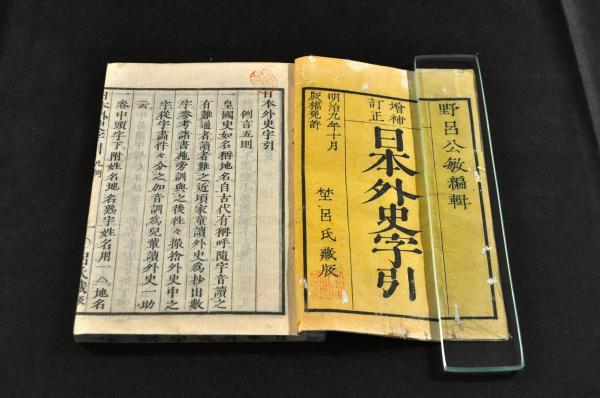 野呂公敏編輯
増補
訂正
日本外史字引
明治九年十月
版権免許
埜呂氏藏版
日本外史字引
例言五則
一皇國史如名稱地名自古代有稱呼隨字音讀之
有難通者讀者難之近頃家童讀外史為抄出數
字参考諸書施旁訓與之後徃々撮捨外史中之
字從字畫件々分之加音訓為兒輩讀外史一助
云
一卷中頭字下附姓名地名熟字姓名用一△地名
日本外史字引
凡例
呂氏藏版